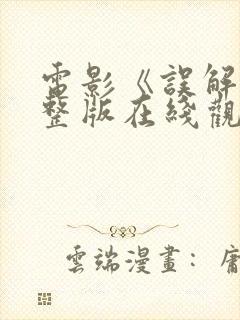 電影《誤解
整版在綫觀
雲端漫畫：庸